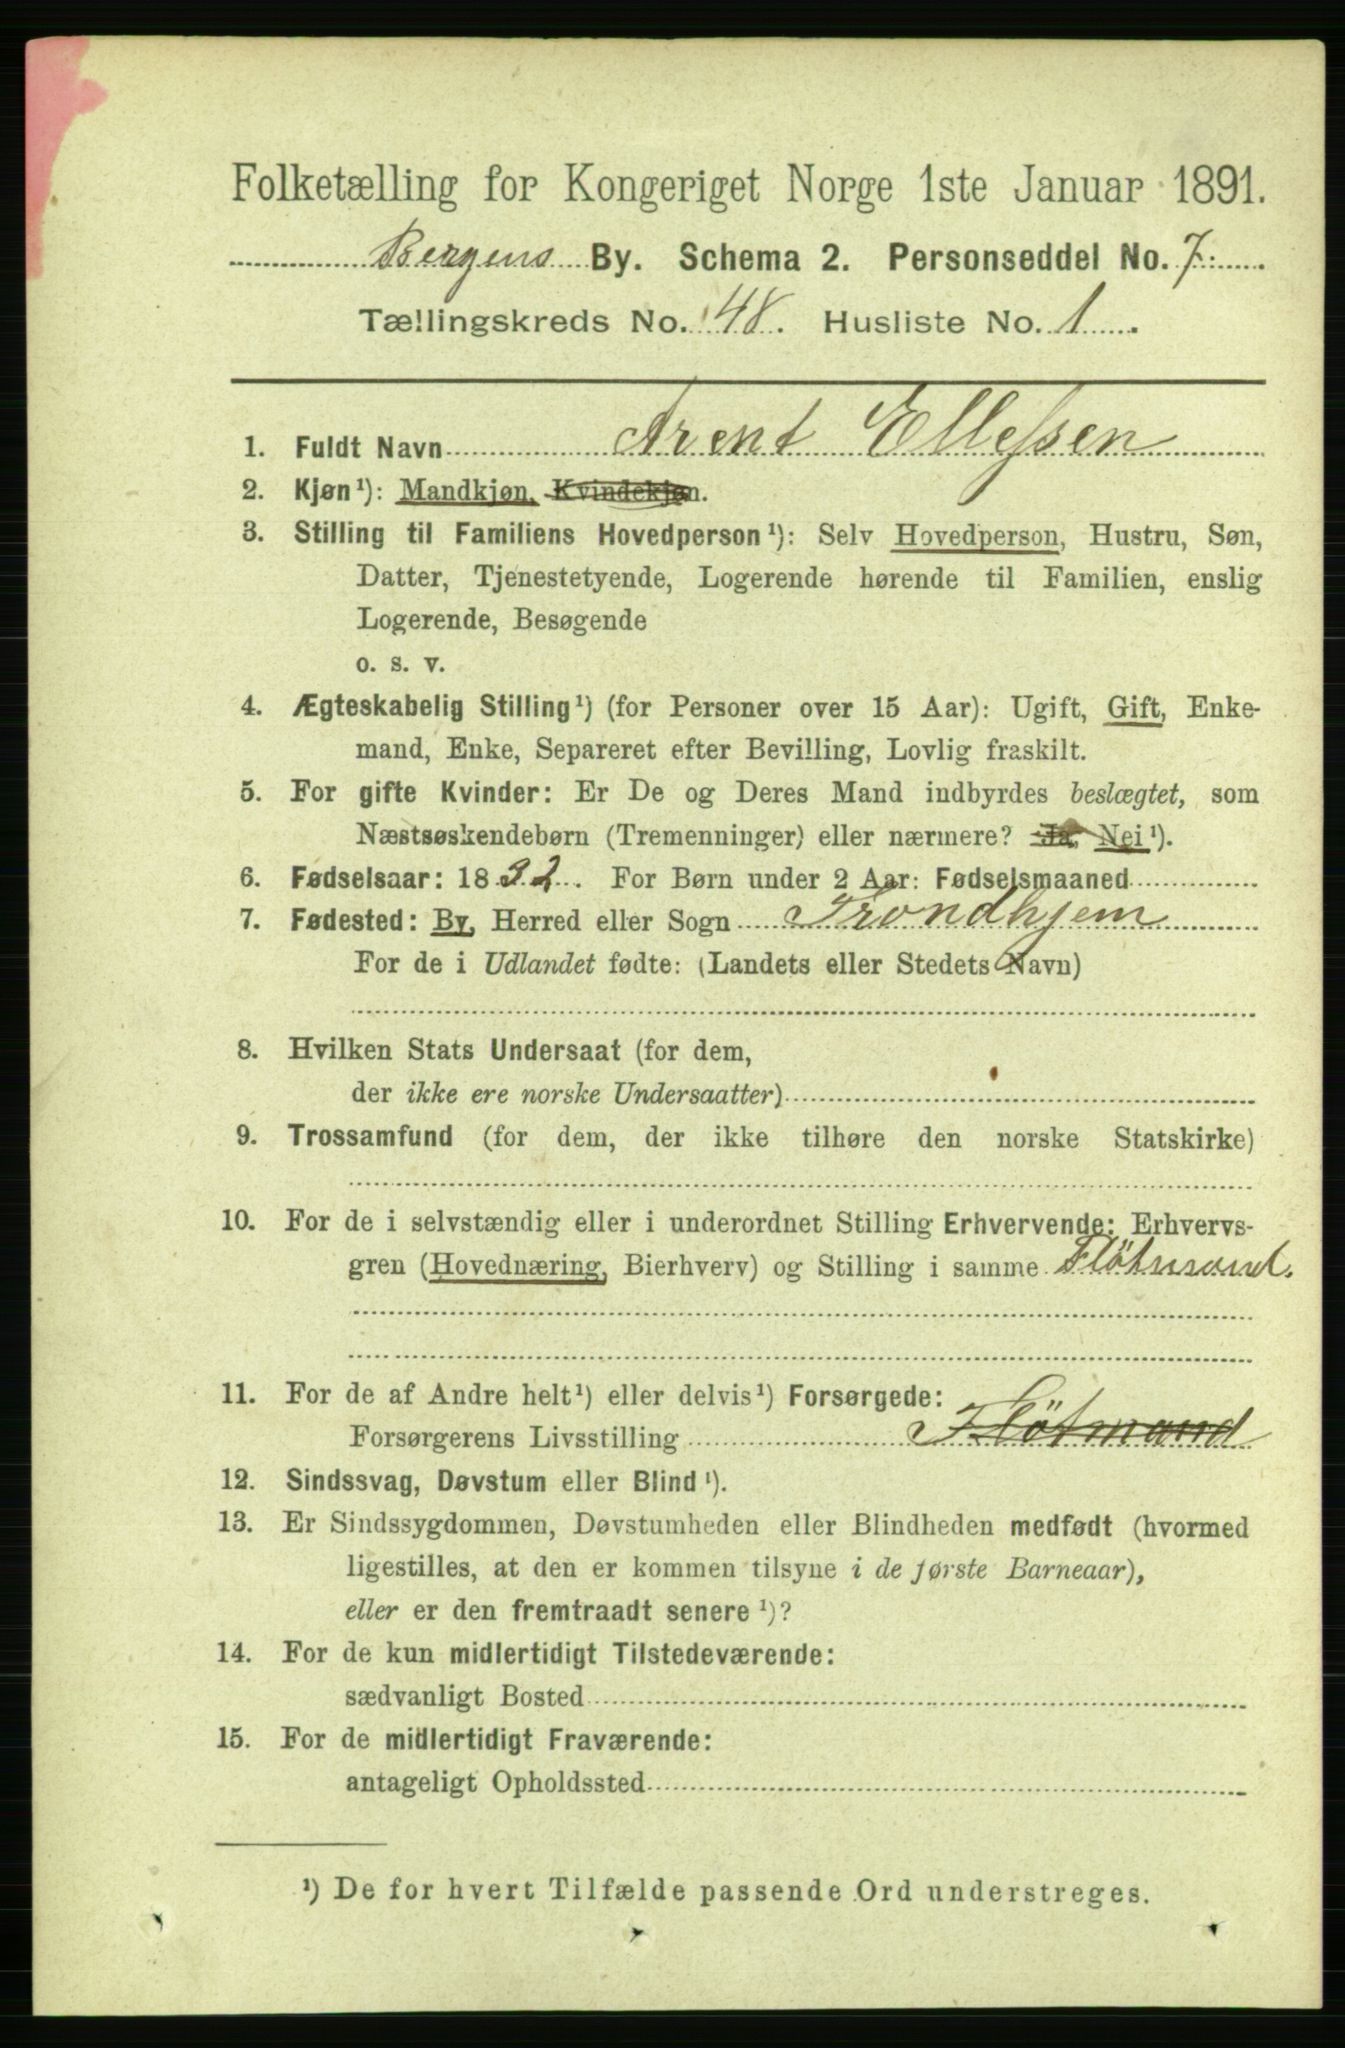 Folketælling for Kongeriget Norge 1ste Januar 1891.
Bergens By. Schema 2. Personseddel No. 7.
Tællingskreds No. 48. Husliste No. 1.
1. Fuldt Navn Arent Ellefsen
2. Kjøn¹): Mandkjøn, Kvindekjøn.
3. Stilling til Familiens Hovedperson¹): Selv Hovedperson, Hustru, Søn,
Datter, Tjenestetyende, Logerende hørende til Familien, enslig
Logerende, Besøgende
o. s. v.
4. Ægteskabelig Stilling¹) (for Personer over 15 Aar): Ugift, Gift, Enke-
mand, Enke, Separeret efter Bevilling, Lovlig fraskilt.
5. For gifte Kvinder: Er De og Deres Mand indbyrdes beslægtet, som
Næstsøskendebørn (Tremenninger) eller nærmere? Ja, Nei¹).
6. Fødselsaar: 1832. For Børn under 2 Aar: Fødselsmaaned
7. Fødested: By, Herred eller Sogn Trondhjem
For de i Udlandet fødte: (Landets eller Stedets Navn)
8. Hvilken Stats Undersaat (for dem,
der ikke ere norske Undersaatter)
9. Trossamfund (for dem, der ikke tilhøre den norske Statskirke)
10. For de i selvstændig eller i underordnet Stilling Erhvervende: Erhvervs-
gren (Hovednæring, Bierhverv) og Stilling i samme Flötmand.
11. For de af Andre helt¹) eller delvis¹) Forsørgede:
Forsørgerens Livsstilling Flötmand
12. Sindssvag, Døvstum eller Blind¹).
13. Er Sindssygdommen, Døvstumheden eller Blindheden medfødt (hvormed
ligestilles, at den er kommen tilsyne i de første Barneaar),
eller er den fremtraadt senere¹)?
14. For de kun midlertidigt Tilstedeværende:
sædvanligt Bosted
15. For de midlertidigt Fraværende:
antageligt Opholdssted
¹) De for hvert Tilfælde passende Ord understreges.